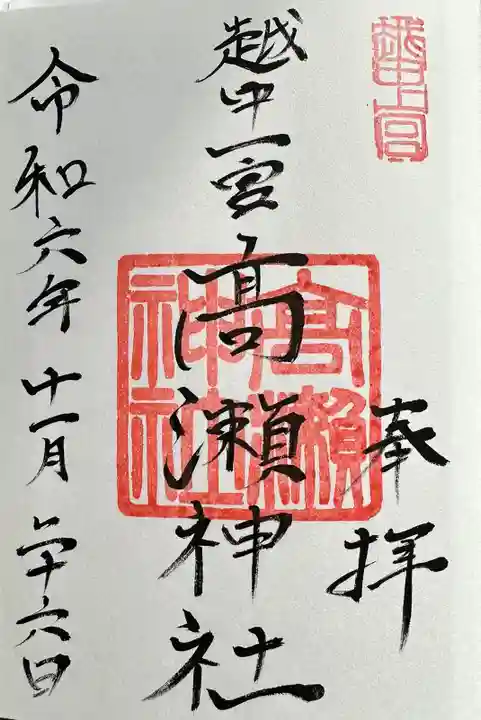 越中一宮
奉拝
越中一宮髙瀬神社
髙瀬神社
令和六年十一月二十六日